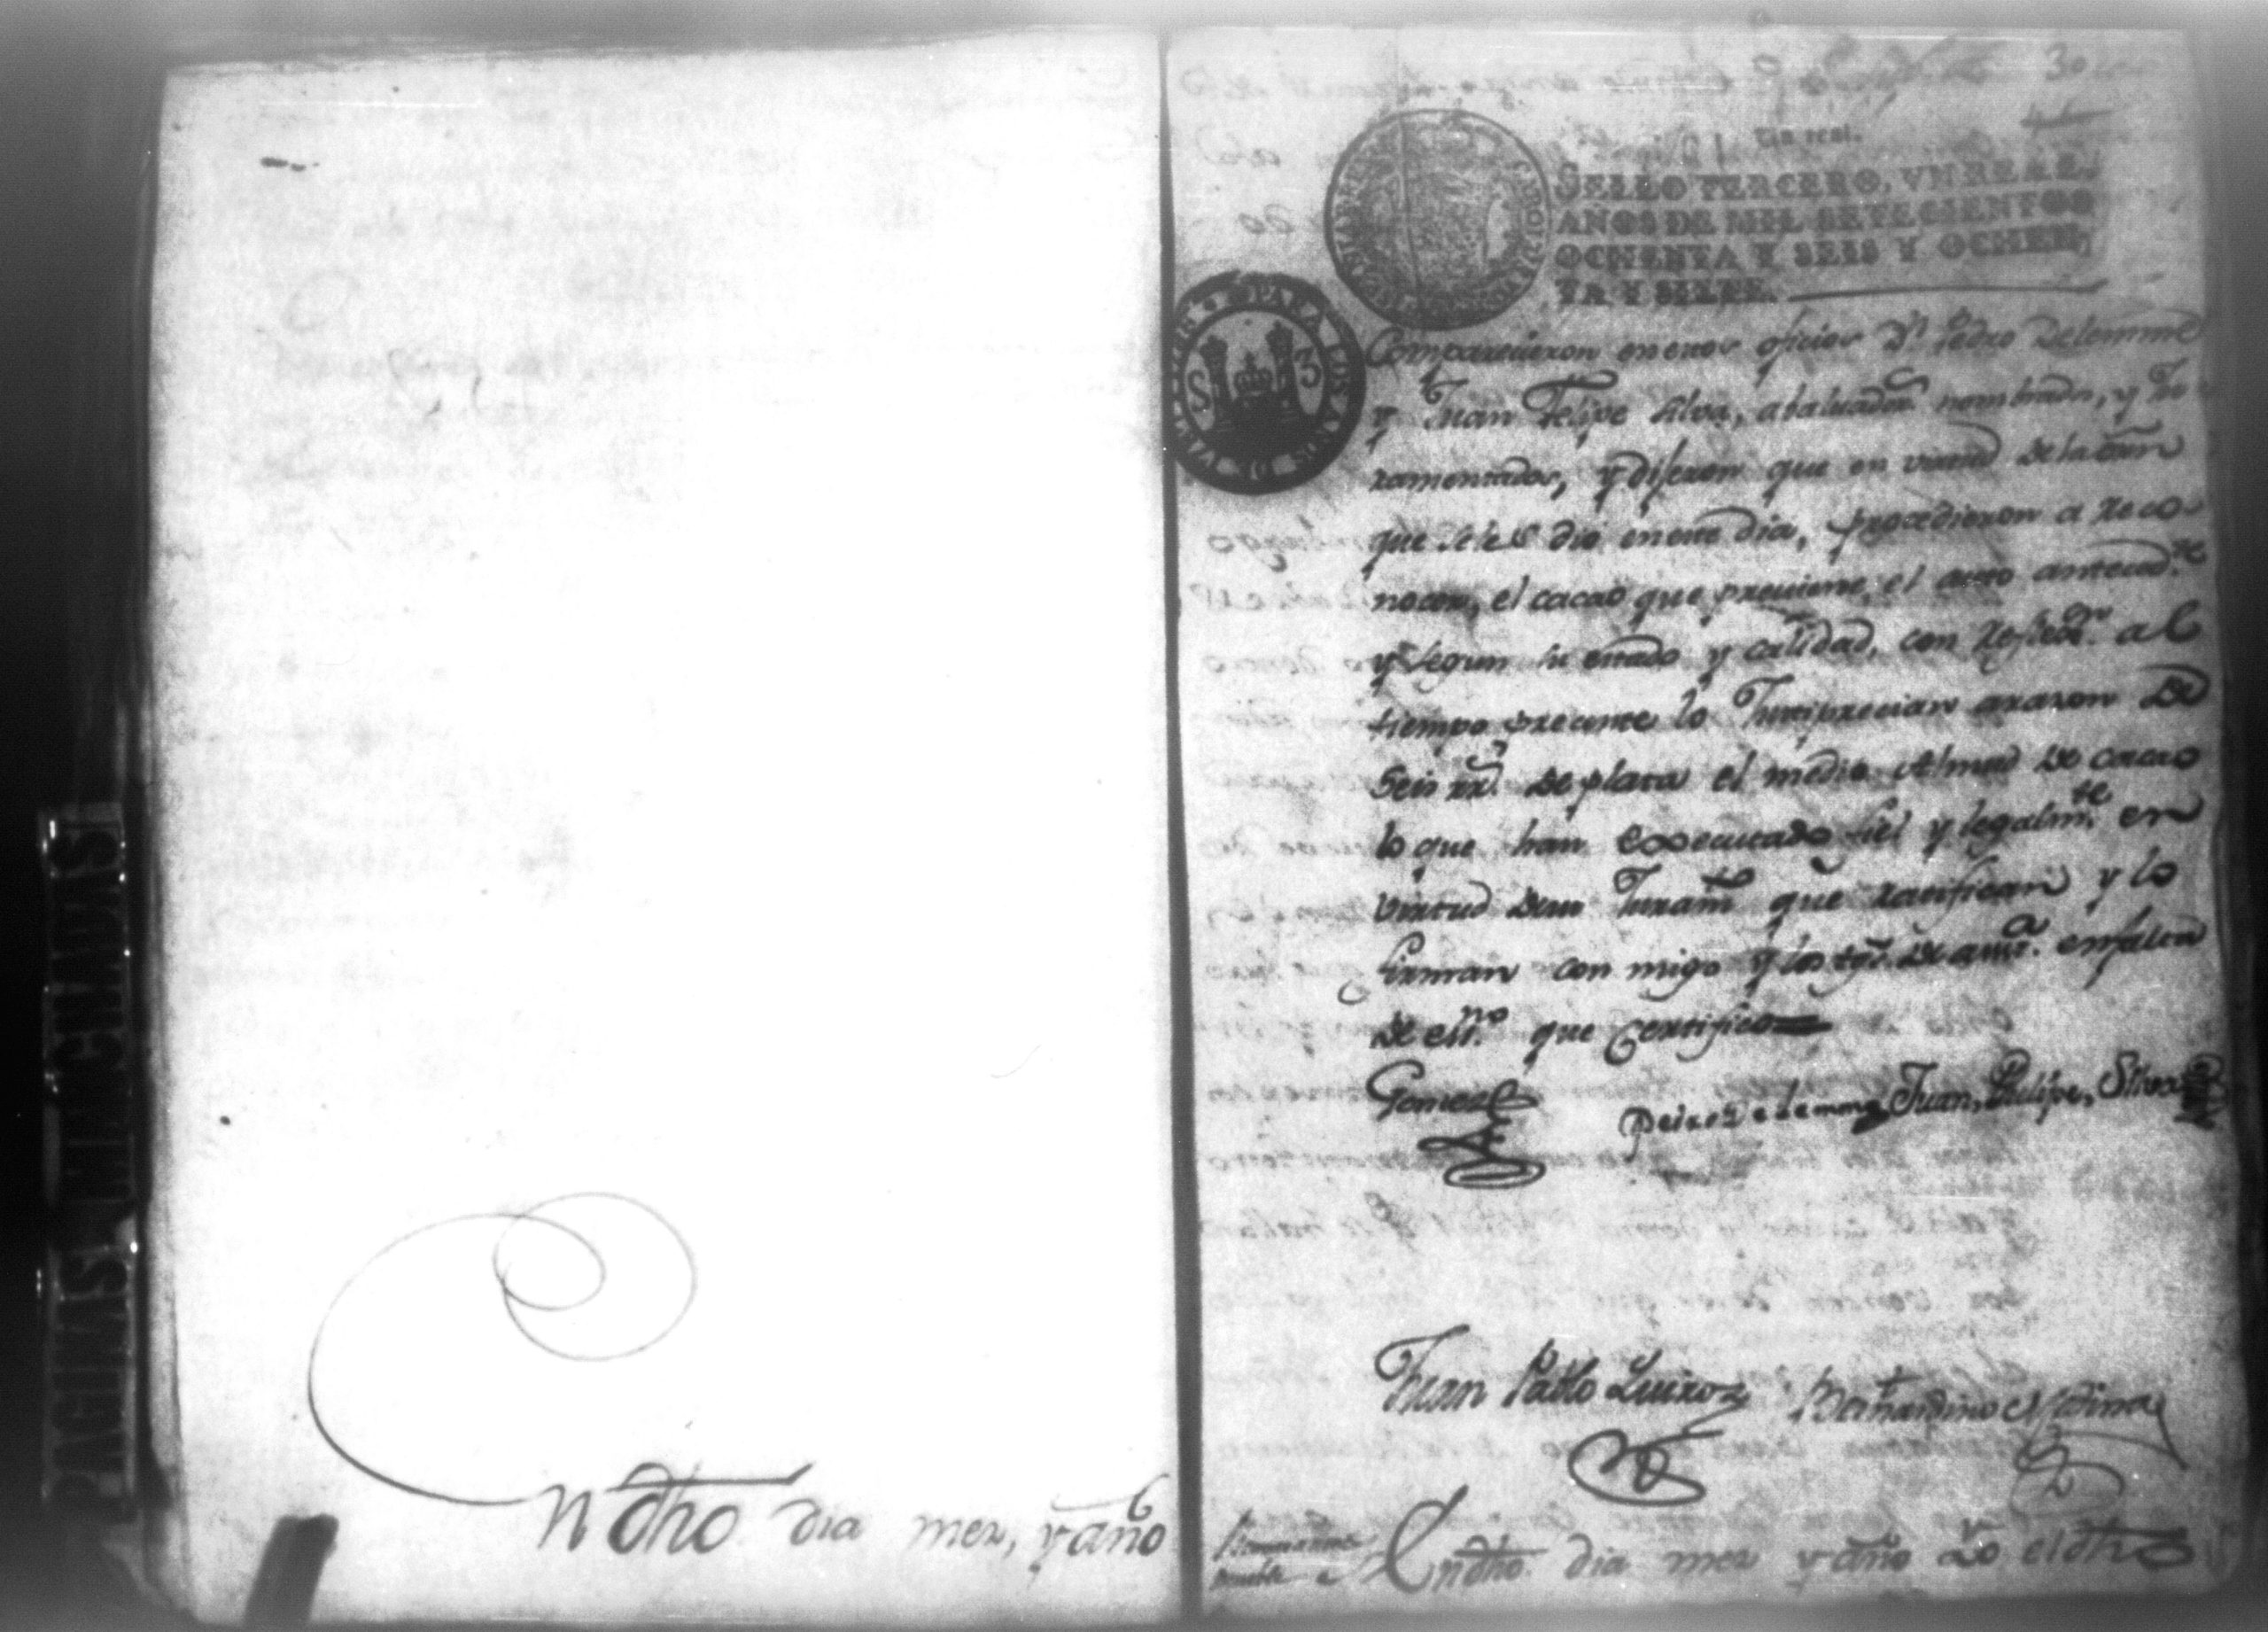 En dho dia mes, y año
30
Un real.
SELLO TERCERO, VN REAL,
AÑOS DE MIL SETECIENTOS
OCHENTA Y SEIS Y OCHEN,
TA Y SIETE.
PARA LOS AÑOS DE
S 3
Comparecieron en estos oficios Dn Pedro Delemme
y Juan Felipe Silva, abaluadors nombrados, y Ju
ramentados, y dixeron que en virtud de la com
que se les dio en este dia, procedieron a reco
nocer, el cacao que previene, el auto anteced.te
y segun su estado y calidad, con reflecn. al
tiempo precente lo Justiprecian a razon de
Seis rrs. de plata el medio Almud de cacao
lo que han executado fiel y legalm.te en
virtud de su Juramto que ratifican y lo
firman con migo y los tgs. de asisa. en falta
de essno. que Certifico
Gomez
Pedro Delemme Juan, Phelipe, Silva
Juan Pablo Quiroz Bernardino Medina
En dho dia mes y año Yo el dho